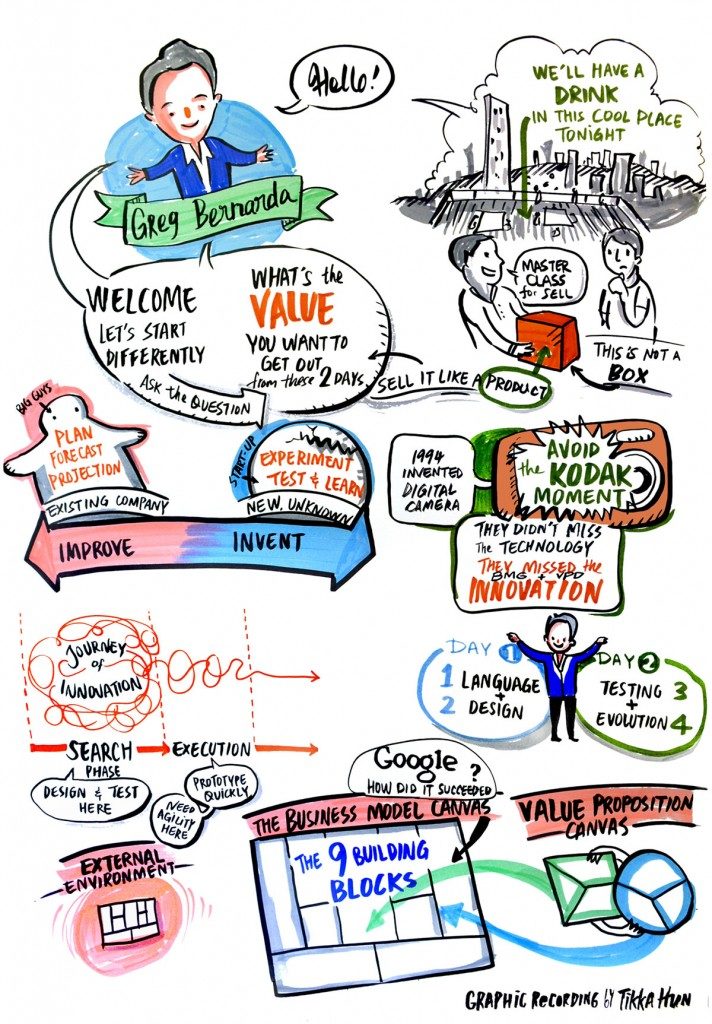 Hello!
Greg Bernarda
WE'LL HAVE A
DRINK
IN THIS COOL PLACE
TONIGHT
MASTER
CLASS
for SELL
THIS IS NOT A
BOX
WELCOME
LET'S START
DIFFERENTLY
Ask the QUESTION
WHAT'S the
VALUE
YOU WANT TO
GET OUT
from these 2 DAYS
SELL IT LIKE A PRODUCT
BIG GUYS
PLAN
FORECAST
PROJECTION
EXISTING COMPANY
START-UP
EXPERIMENT
TEST & LEARN
NEW, UNKNOWN
IMPROVE
INVENT
1994
INVENTED
DIGITAL
CAMERA
AVOID
the KODAK
MOMENT
THEY DIDN'T MISS
The TECHNOLOGY
THEY MISSED the
BMG + VPD
INNOVATION
JOURNEY
of
INNOVATION
SEARCH
PHASE
EXECUTION
DESIGN & TEST
HERE
NEED
AGILITY
HERE
PROTOTYPE
QUICKLY
DAY 1
1 LANGUAGE
+
2 DESIGN
DAY 2
TESTING 3
+
EVOLUTION 4
EXTERNAL
ENVIRONMENT
Google ?
HOW DID IT SUCCEEDED
THE BUSINESS MODEL CANVAS
THE 9 BUILDING
BLOCKS
VALUE PROPOSITION
CANVAS
GRAPHIC RECORDING by TIKKA HUN